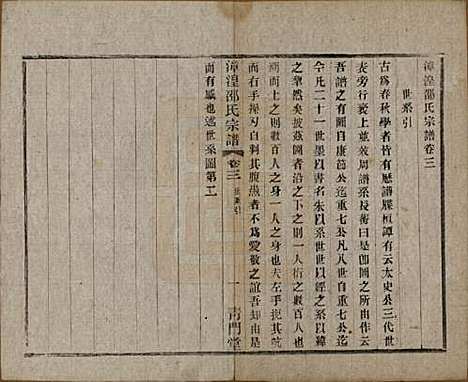 漳湟邵氏宗譜卷三
世系引
古爲春秋學者皆有歷譜牒桓譚有云太史公三代世
表旁行裦上並效周譜系長蘅曰是卽圖之所由作云
吾譜之有圖自康節公迄重七公凡八世自重七公迄
今凡二十一世墨以書名朱以系世世以經之
之犂然矣披茲圖者沿之下之則一人析之數百人也
溯而上之則數百人一人之身也夫左手據其吭
而右手操刃自剚其腹濊者不爲愛敬之誼吾知由是
而有感也述世系圖第二
漳湟邵氏宗譜
卷三
世系引
一
靑門堂